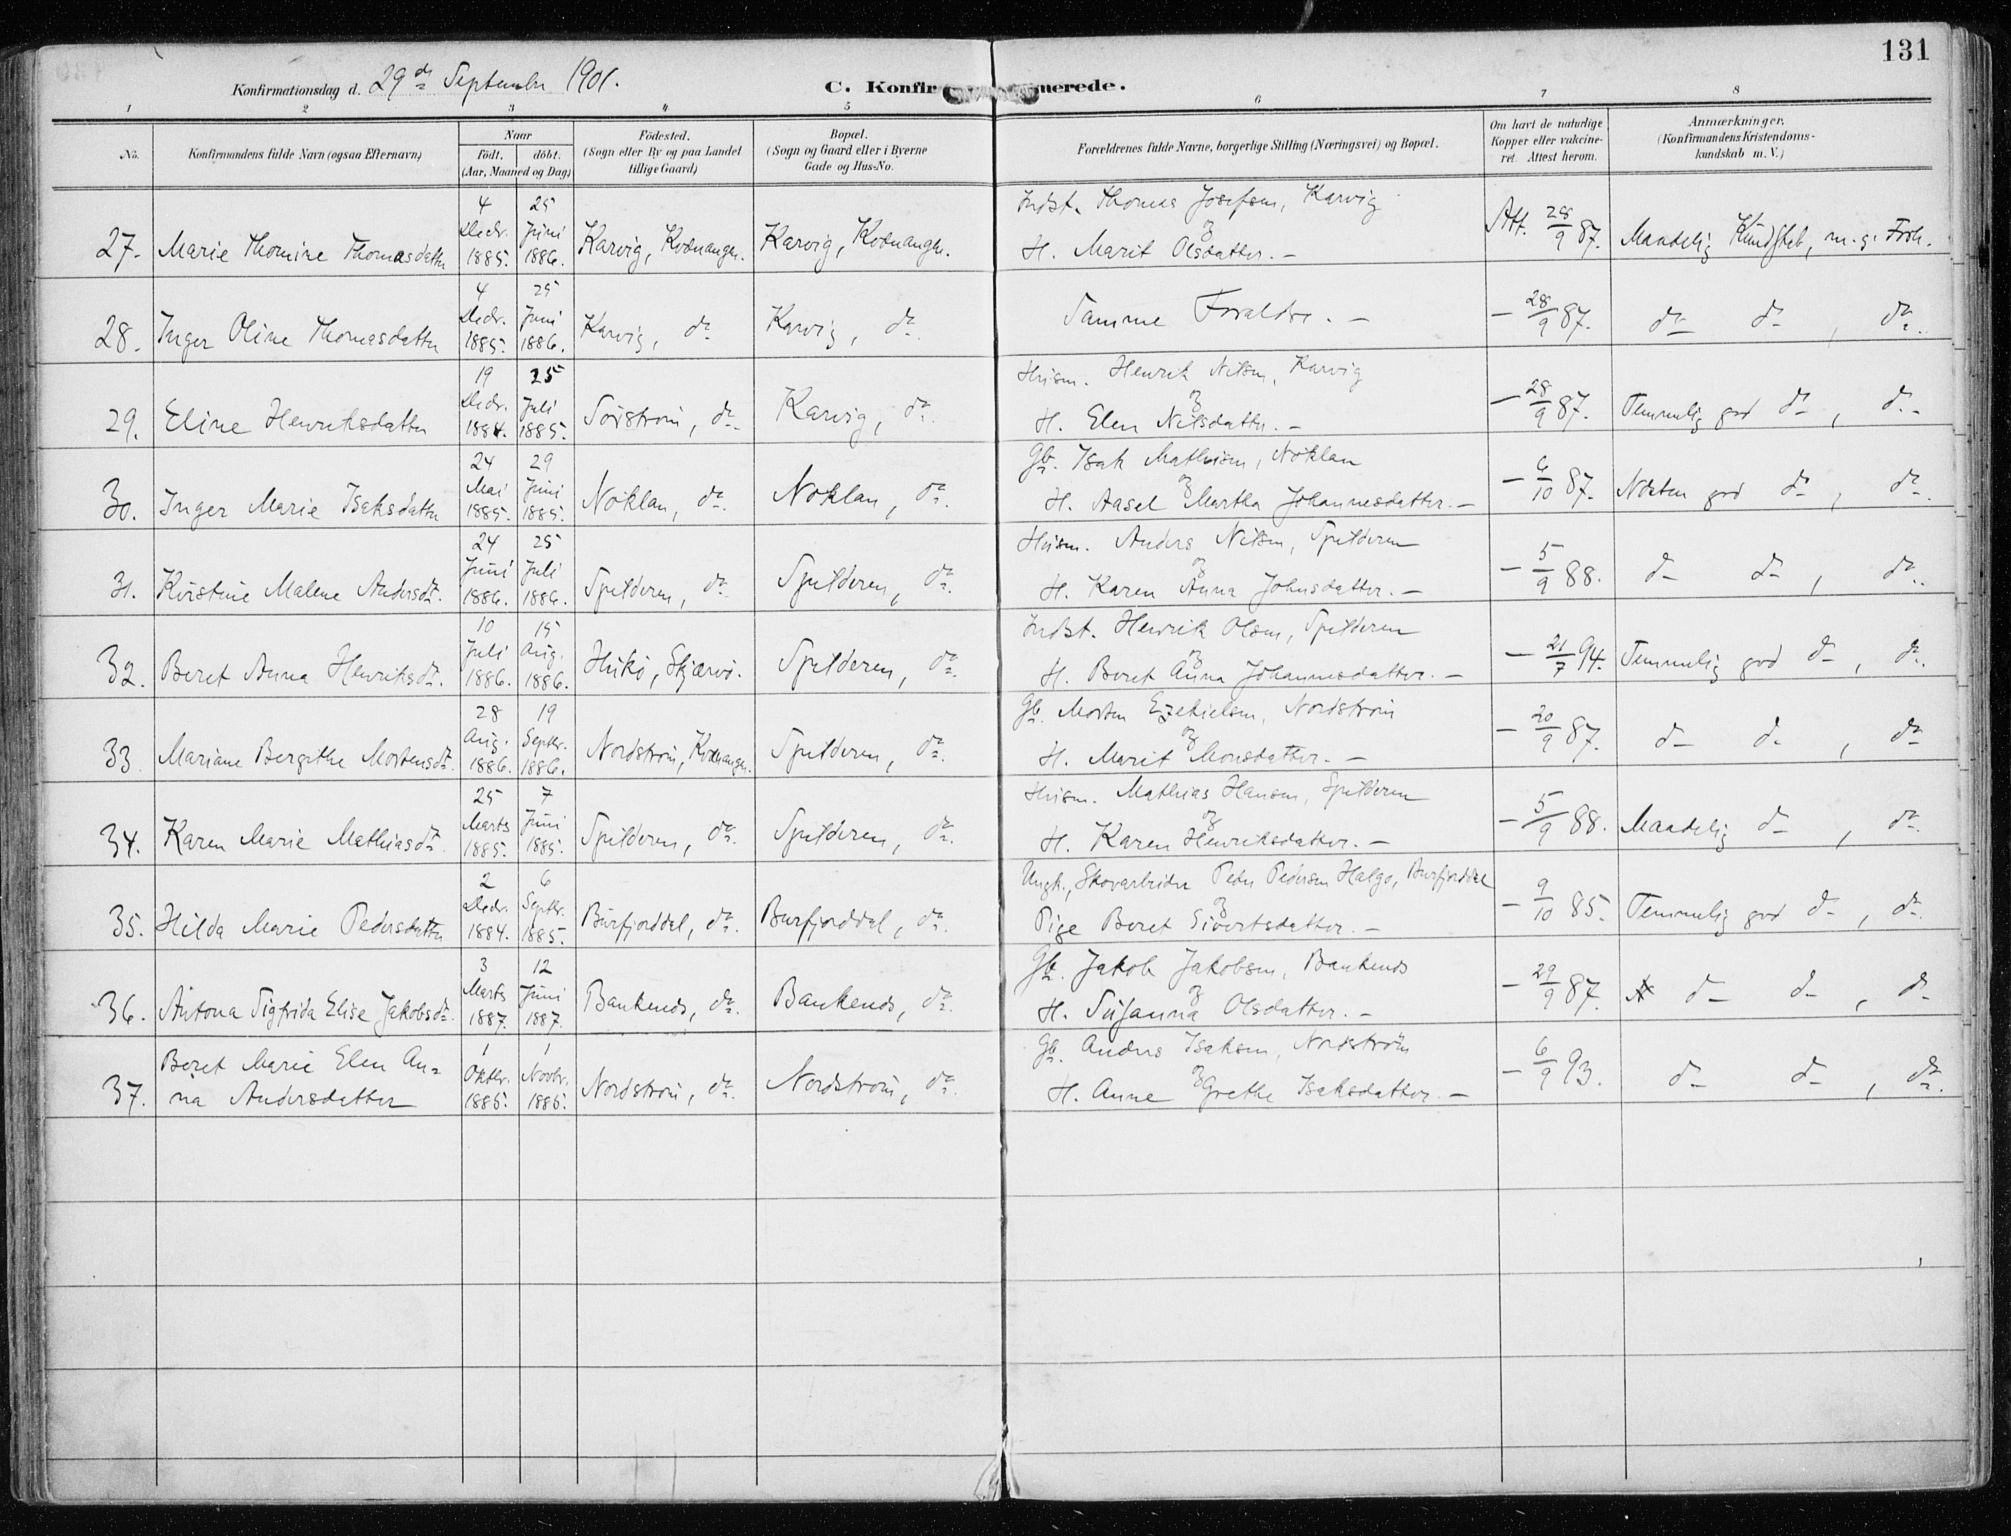 131
Konfirmationsdag d. 29de September 1901. C. Konfir merede.
1 2 3 4 5 6 7 8
No. Konfirmandens fulde Navn (ogsaa Efternavn) Naar Födested. Bopæl. Forældrenes fulde Navne, borgerlige Stilling (Næringsvei) og Bopæl. Om havt de naturlige Anmærkninger.
födt. döbt. (Sogn eller By og paa Landet (Sogn og Gaard eller i Byerne Kopper eller vakcine- (Konfirmandens Kristendoms-
(Aar, Maaned og Dag) tillige Gaard) Gade og Hus-No. ret. Attest herom. kundskab m. V.)
4 25 Indst. Thomas Josefsen, Karvig
Decbr. Juni og
27. Marie Thomine Thomasdatter 1885. 1886. Karvig, Kvænangen. Karvig, Kvænangen. H. Marit Olsdatter. – Att. 28/9 87. Maadelig Kundskab, m. g. Forh.
4 25
Decbr. Juni
28. Inger Oline Thomasdatter 1885. 1886. Karvig, do Karvig, do Samme Forældre. – – 28/9 87. do do, do.
19 25 Husm. Henrik Nilsen, Karvig
Decbr. Juli og
29. Eline Henriksdatter 1884. 1885. Sörström, do. Karvig, do. H. Elen Nilsdatter. – – 28/9 87. Temmelig god do, do.
24 29 Gb. Isak Mathisen, Nöklan
Mai Juni og
30. Inger Marie Isaksdatter 1885. 1885. Nöklan, do. Nöklan, do. H. Aasel Martha Johannesdatter. – – 6/10 87. Næsten god do, do.
24 25 Husm. Anders Nilsen, Spilderen
Juni Juli og
31. Kirstine Malene Andersdtr. 1886. 1886. Spilderen, do. Spilderen, do. H. Karen Anna Johnsdatter. – – 5/9 88. do do, do.
10 15 Indst. Henrik Olsen, Spilderen
Juli Aug. og
32. Beret Anna Henriksdtr. 1886. 1886. Hukö, Skjærvö. Spilderen, do. H. Beret Anna Johannesdatter. – – 21/7 94. Temmelig god do, do.
28 19 Gb. Morten Ezekielsen, Nordström
Aug. Septbr. og
33. Mariane Bergithe Mortensdtr. 1886. 1886. Nordström, Kvænangen. Spilderen, do. H. Marit Monsdatter. – – 20/9 87. do do, do
25 7 Husm. Mathias Hansen, Spilderen
Marts Juni og
34. Karen Marie Mathiasdtr. 1885. 1885. Spilderen, do. Spilderen, do. H. Karen Henriksdatter. – – 5/9 88. Maadelig do, do.
2 6 Ungk., Skovarbeider Peder Pedersen Halgo, Burfjorddal
Decbr. Septbr. og
35. Hilda Marie Pedersdatter 1884. 1885. Burfjorddal, do. Burfjorddal, do. Pige Beret Sivertsdatter. – – 9/10 85. Temmelig god do, do.
3 12 Gb. Jakob Jakobsen, Bankenes
Marts Juni og
36. Antona Sigfrida Elise Jakobsdtr. 1887. 1887. Bankenes, do. Bankenes, do. H. Susanna Olsdatter. – – 29/9 87. do do, do
Beret Marie Elen An- 1 1 Gb. Anders Isaksen, Nordström
Oktbr. Novbr. og
37. na Andersdatter 1885. 1885. Nordström, do. Nordström, do. H. Anne Grethe Isaksdatter. – – 6/9 93. do do, do.